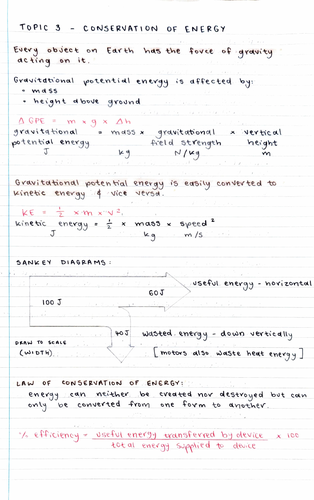 TOPIC 3 - CONSERVATION OF ENERGY
Every object on Earth has the force of gravity
acting on it.
Gravitational potential energy is affected by:
• mass
• height above ground
Δ GPE = m × g × Δh
gravitational = mass × gravitational × vertical
potential energy field strength height
J kg N/kg m
Gravitational potential energy is easily converted to
kinetic energy & vice versa.
KE = 1/2 × m × v².
kinetic energy = 1/2 × mass × speed²
J kg m/s
SANKEY DIAGRAMS:
useful energy - horizontal
60J
100 J
40J wasted energy - down vertically
DRAW TO SCALE
(WIDTH) [motors also waste heat energy]
LAW OF CONSERVATION OF ENERGY:
energy can neither be created nor destroyed but can
only be converted from one form to another.
% efficiency = useful energy transferred by device × 100
total energy supplied to device